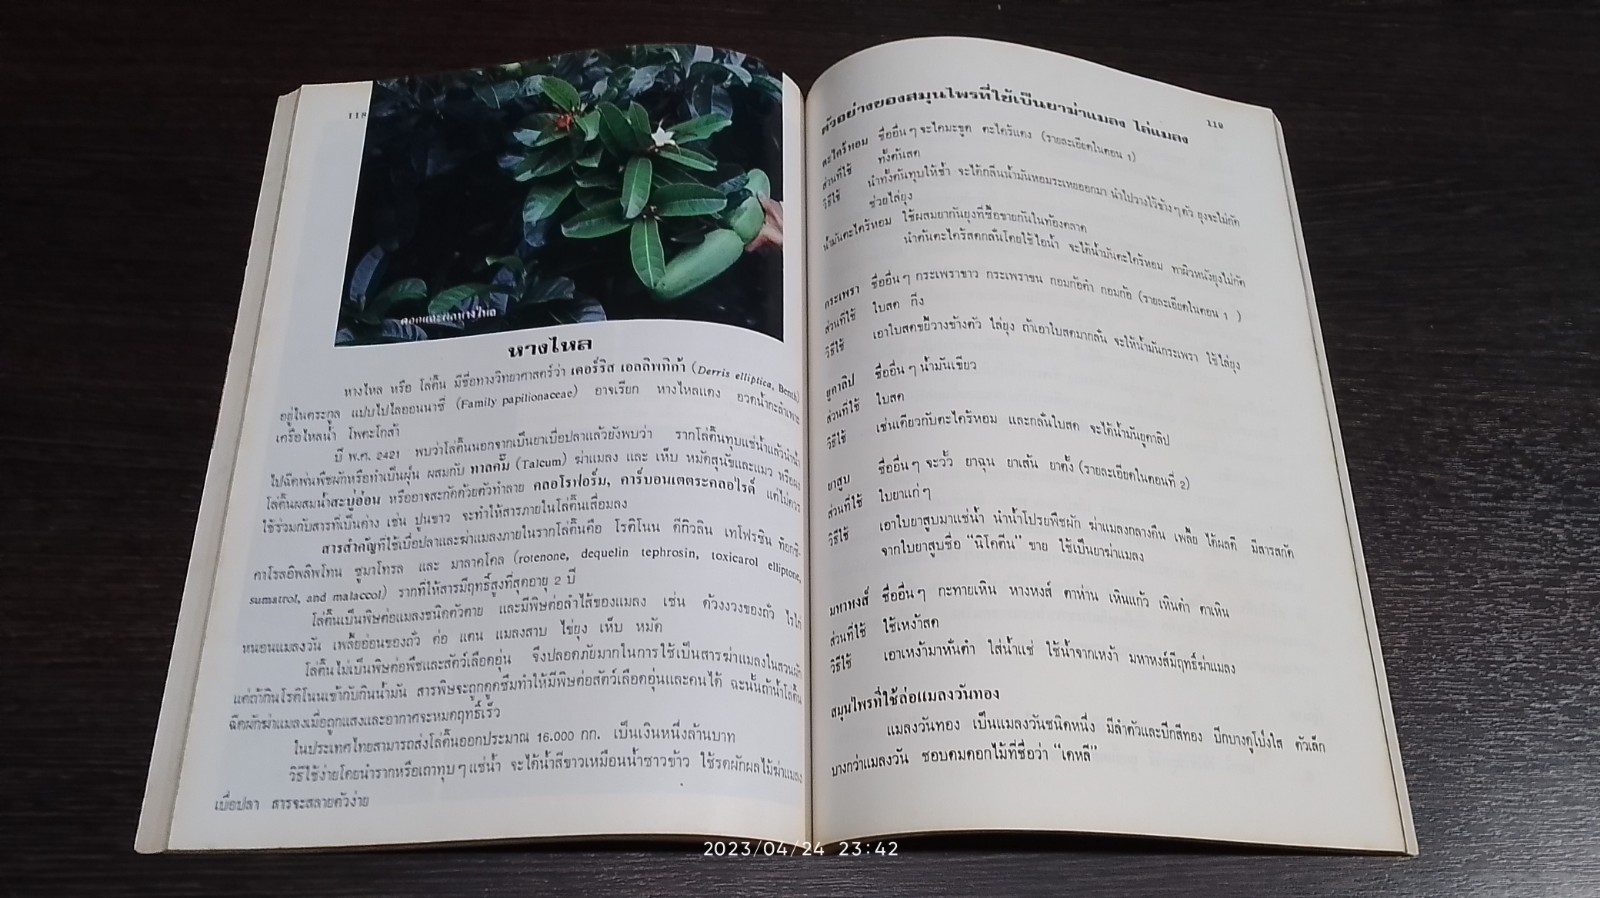 118
ดอกและผลหางไหล
หางไหล
หางไหล หรือ โล่ติ๊น มีชื่อทางวิทยาศาสตร์ว่า เดอร์ริส เอลลิพทิก้า (Derris elliptica, Benth)
อยู่ในตระกูล แปบไปไลออนนาซี่ (Family papilionaceae) อาจเรียก หางไหลแดง อวดน้ำกะลำเพาะ
เครือไหลน้ำ โพตะโกส้า
ปี พ.ศ. 2421 พบว่าโล่ติ๊นนอกจากเป็นยาเบื่อปลาแล้วยังพบว่า รากโล่ติ๊นทุบแช่น้ำแล้วนำน้ำ
ไปฉีดพ่นพืชผักหรือทำเป็นฝุ่น ผสมกับ ทาลคั่ม (Talcum) ฆ่าแมลง และ เห็บ หมัดสุนัขและแมว หรือผง
โล่ติ๊นผสมน้ำสะบู่อ่อน หรืออาจสะกัดด้วยตัวทำลาย คลอโรฟอร์ม, คาร์บอนเตตระคลอไรด์ แต่ไม่ควร
ใช้ร่วมกับสารที่เป็นด่าง เช่น ปูนขาว จะทำให้สารภายในโล่ติ๊นเสื่อมลง
สารสำคัญที่ใช้เบื่อปลาและฆ่าแมลงภายในรากโล่ติ๊นคือ โรติโนน ดีกิวลิน เทโฟรซิน ท๊อกซิ-
คาโรลอิพลิพโทน ซูมาโทรล และ มาลาคโคล (rotenone, dequelin tephrosin, toxicarol elliptone,
sumatrol, and malaccol) รากที่ให้สารมีฤทธิ์สูงที่สุดอายุ 2 ปี
โล่ติ๊นเป็นพิษต่อแมลงชนิดตัวตาย และมีพิษต่อลำไส้ของแมลง เช่น ด้วงงวงของถั่ว ไรไก่
หนอนแมลงวัน เพลี้ยอ่อนของถั่ว ต่อ แตน แมลงสาบ ไข่ยุง เห็บ หมัด
โล่ติ๊นไม่เป็นพิษต่อพืชและสัตว์เลือดอุ่น จึงปลอดภัยมากในการใช้เป็นสารฆ่าแมลงในสวนผัก
แต่ถ้ากินโรติโนนเข้ากับกินน้ำมัน สารพิษจะถูกดูดซึมทำให้มีพิษต่อสัตว์เลือดอุ่นและคนได้ ฉะนั้นถ้าน้ำโล่ติ๊น
ฉีดผักฆ่าแมลงเมื่อถูกแสงและอากาศจะหมดฤทธิ์เร็ว
ในประเทศไทยสามารถส่งโล่ติ๊นออกประมาณ 16.000 กก. เป็นเงินหนึ่งล้านบาท
วิธีใช้ง่ายโดยนำรากหรือเถาทุบๆ แช่น้ำ จะได้น้ำสีขาวเหมือนน้ำซาวข้าว ใช้รดผักผลไม้ฆ่าแมลง
เบื่อปลา สารจะสลายตัวง่าย
119
ตัวอย่างของสมุนไพรที่ใช้เป็นยาฆ่าแมลง ไล่แมลง
ตะไคร้หอม ชื่ออื่นๆ จะไคมะขูด ตะไคร้แดง (รายละเอียดในตอน 1)
ส่วนที่ใช้ ทั้งต้นสด
วิธีใช้ นำทั้งต้นทุบให้ช้ำ จะได้กลิ่นน้ำมันหอมระเหยออกมา นำไปวางไว้ข้างๆ ตัว ยุงจะไม่กัด
ช่วยไล่ยุง
น้ำมันตะไคร้หอม ใช้ผสมยากันยุงที่ซื้อขายกันในท้องตลาด
นำต้นตะไคร้สดกลั่นโดยใช้ไอน้ำ จะได้น้ำมันตะไคร้หอม ทาผิวหนังยุงไม่กัด
กระเพรา ชื่ออื่นๆ กระเพราขาว กระเพราขน กอมก้อดำ กอมก้อ (รายละเอียดในตอน 1 )
ส่วนที่ใช้ ใบสด กิ่ง
วิธีใช้ เอาใบสดขยี้วางข้างตัว ไล่ยุง ถ้าเอาใบสดมากลั่น จะให้น้ำมันกระเพรา ใช้ไล่ยุง
ยูคาลิป ชื่ออื่นๆ น้ำมันเขียว
ส่วนที่ใช้ ใบสด
วิธีใช้ เช่นเดียวกับตะไคร้หอม และกลั่นใบสด จะได้น้ำมันยูคาลิป
ยาสูบ ชื่ออื่นๆ จะวั้ว ยาฉุน ยาเส้น ยาตั้ง (รายละเอียดในตอนที่ 2)
ส่วนที่ใช้ ใบยาแก่ๆ
วิธีใช้ เอาใบยาสูบมาแช่น้ำ นำน้ำโปรยพืชผัก ฆ่าแมลงกลางคืน เพลี้ย ได้ผลดี มีสารสกัด
จากใบยาสูบชื่อ “นิโคตีน” ขาย ใช้เป็นยาฆ่าแมลง
มหาหงส์ ชื่ออื่นๆ กะทายเหิน หางหงส์ ตาห่าน เหินแก้ว เหินคำ ตาเหิน
ส่วนที่ใช้ ใช้เหง้าสด
วิธีใช้ เอาเหง้ามาหั่นตำ ใส่น้ำแช่ ใช้น้ำจากเหง้า มหาหงส์มีฤทธิ์ฆ่าแมลง
สมุนไพรที่ใช้ล่อแมลงวันทอง
แมลงวันทอง เป็นแมลงวันชนิดหนึ่ง มีลำตัวและปีกสีทอง ปีกบางดูโปร่งใส ตัวเล็ก
บางกว่าแมลงวัน ชอบตมดอกไม้ที่ชื่อว่า “เดหลี”
2023/04/24 23:42